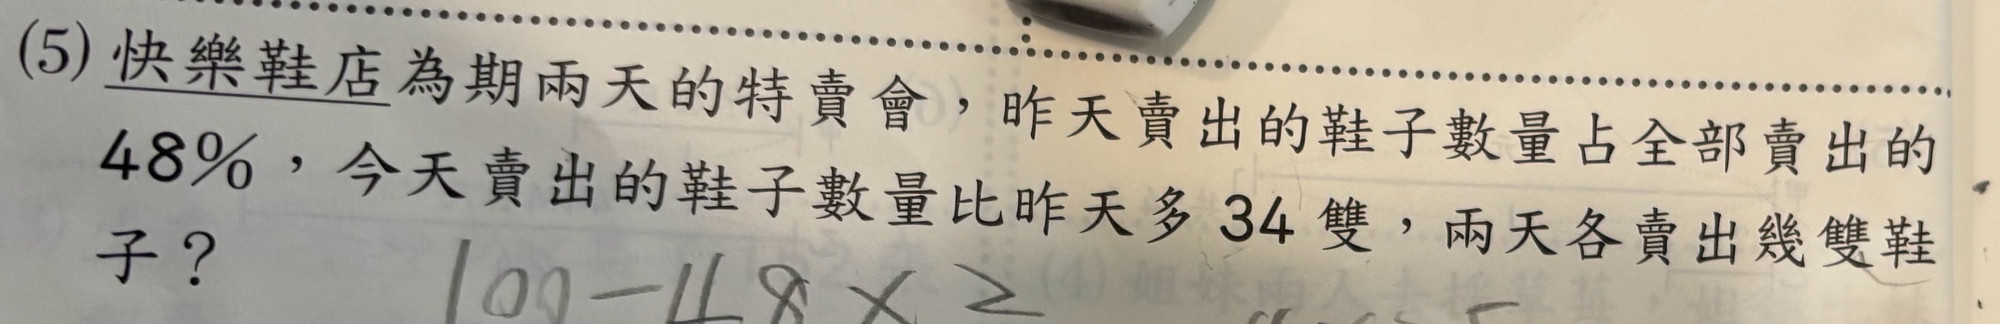 (5) 快樂鞋店為期兩天的特賣會，昨天賣出的鞋子數量占全部賣出的
48%，今天賣出的鞋子數量比昨天多 34 雙，兩天各賣出幾雙鞋
子？
100-48×2